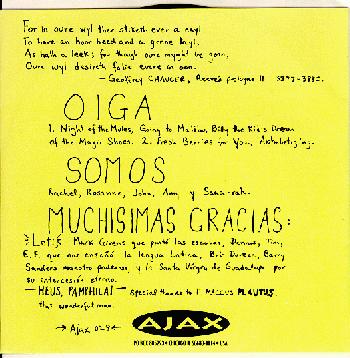 For in oure wyl ther stiketh ever a nayl,
To have an hoor heed and a grene tayl,
As hath a leek; for though oure myght be goon,
Oure wyl desireth folie evere in oon.
— Geoffrey CHAUCER, Reeve's prologue
OIGA
1. Night of the Mules, Going to Malibu, Billy the Kid's Dream
of the Magic Shoes. 2. Fresh Berries for You,
SOMOS
Rachel, Rosanne, John, Amy y Sara-rah.
MUCHISIMAS GRACIAS:
Mark Givens que pintó las Dennis, Tim,
E.F. que nos enseñó la lengua Latina, Bob Durkee, Barry
Sanders maestro poderoso, y la Santa Virgen de Guadalupe por
su intercesión eterna.
— HEUS, PAMPHILA! — Special thanks to T MACCUS PLAUTUS.
that wonderful man.
→ Ajax 029 ←
AJAX